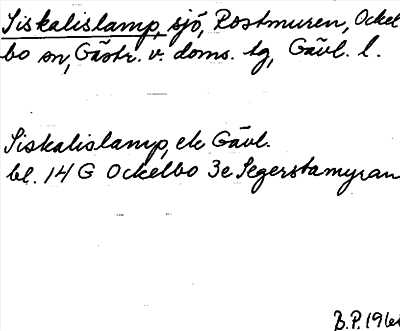 Siskalislamp, sjö, Rostmuren, Ockel
bo sn, Gästr. v. doms. tg, Gävl. l.
Siskalislamp, ek Gävl.
bl. 14 G Ockelbo 3e Segerstamyran
B.P. 196